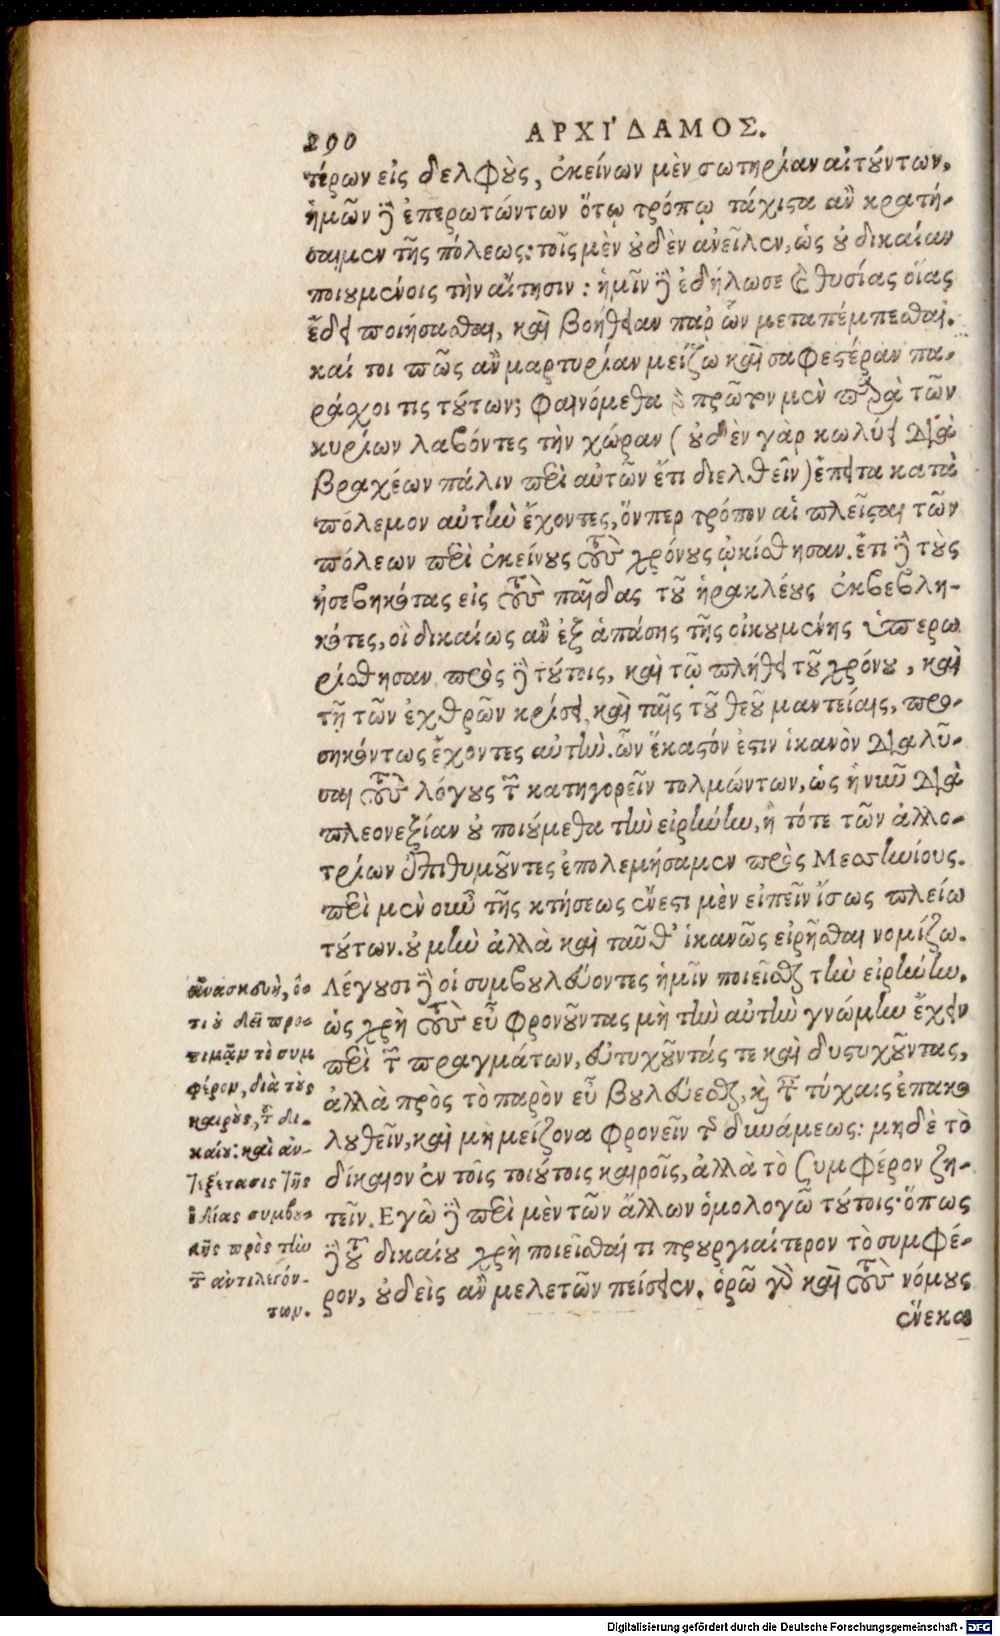 290
ΑΡΧΙ΄ΔΑΜΟΣ.
τέρων εἰς δελφοὺς, ἐκείνων μὲν σωτηρίαν αἰτούντων,
ἡμῶν δὲ ἐπερωτώντων ὅτῳ τρόπῳ τάχιστα ἂν κρατή-
σαιμεν τῆς πόλεως: τοῖς μὲν οὐδὲν ἀνεῖλεν, ὡς οὐ δικαίαν
ποιουμένοις τὴν αἴτησιν: ἡμῖν δὲ ἐδήλωσε καὶ θυσίας οἵας
ἔδει ποιήσασθαι, καὶ βοήθειαν παρ' ὧν μεταπέμπεσθαι.
καί τοι πῶς ἂν μαρτυρίαν μείζω καὶ σαφεστέραν πα-
ράσχοι τις τούτων; φαινόμεθα δὲ πρῶτον μὲν παρὰ τῶν
κυρίων λαβόντες τὴν χώραν (οὐδὲν γὰρ κωλύει διὰ
βραχέων πάλιν περὶ αὐτῶν ἔτι διελθεῖν) ἔπειτα κατὰ
πόλεμον αὐτὴν ἔχοντες, ὅνπερ τρόπον αἱ πλεῖσται τῶν
πόλεων περὶ ἐκείνους τοὺς χρόνους ᾠκίσθησαν. ἔτι δὲ τοὺς
ἠσεβηκότας εἰς τοὺς παῖδας τοῦ ἡρακλέους ἐκβεβλη-
κότες, οἳ δικαίως ἂν ἐξ ἁπάσης τῆς οἰκουμένης ὑπερω
ρίσθησαν πρὸς δὲ τούτοις, καὶ τῷ πλήθει τοῦ χρόνου, καὶ
τῇ τῶν ἐχθρῶν κρίσει, καὶ ταῖς τοῦ θεοῦ μαντείαις, προ-
σηκόντως ἔχοντες αὐτὴν. ὧν ἕκαστόν ἐστιν ἱκανὸν διαλῦ-
σαι τοὺς λόγους τῶν κατηγορεῖν τολμώντων, ὡς ἢ νῦν διὰ
πλεονεξίαν οὐ ποιούμεθα τὴν εἰρήνην, ἢ τότε τῶν ἀλλο-
τρίων ἐπιθυμοῦντες ἐπολεμήσαμεν πρὸς Μεσσηνίους.
περὶ μὲν οὖν τῆς κτήσεως ἔνεστι μὲν εἰπεῖν ἴσως πλείω
τούτων. οὐ μὴν ἀλλὰ καὶ ταῦθ' ἱκανῶς εἰρῆσθαι νομίζω.
Λέγουσι δὲ οἱ συμβουλεύοντες ἡμῖν ποιεῖσθαι τὴν εἰρήνην.
ὡς χρὴ τοὺς εὖ φρονοῦντας μὴ τὴν αὐτὴν γνώμην ἔχειν
περὶ τῶν πραγμάτων, εὐτυχοῦντάς τε καὶ δυστυχοῦντας,
ἀλλὰ πρὸς τὸ παρὸν εὖ βουλεύεσθαι, καὶ ταῖς τύχαις ἐπακο
λουθεῖν, καὶ μὴ μείζονα φρονεῖν τῆς δυνάμεως: μηδὲ τὸ
δίκαιον ἐν τοῖς τοιούτοις καιροῖς, ἀλλὰ τὸ συμφέρον ζη-
τεῖν. Εγὼ δὲ περὶ μὲν τῶν ἄλλων ὁμολογῶ τούτοις· ὅπως
δὲ τοῦ δικαίου χρὴ ποιεῖσθαί τι προυργιαίτερον τὸ συμφέ-
ρον, οὐδεὶς ἂν μελετῶν πείσειεν. ὁρῶ γὰρ καὶ τοὺς νόμους
ἕνεκα
ἀνασκευὴ, ὅ-
τι οὐ δεῖ προ-
τιμᾷν τὸ συμ
φέρον, διὰ τοὺς
καιροὺς, τοῦ δι-
καίου: καὶ ἀν-
τεξέτασις τῆς
ἰδίας συμβου-
λῆς πρὸς τὴν
τῶν ἀντιλεγόν-
των.
Digitalisierung gefördert durch die Deutsche Forschungsgemeinschaft - DFG